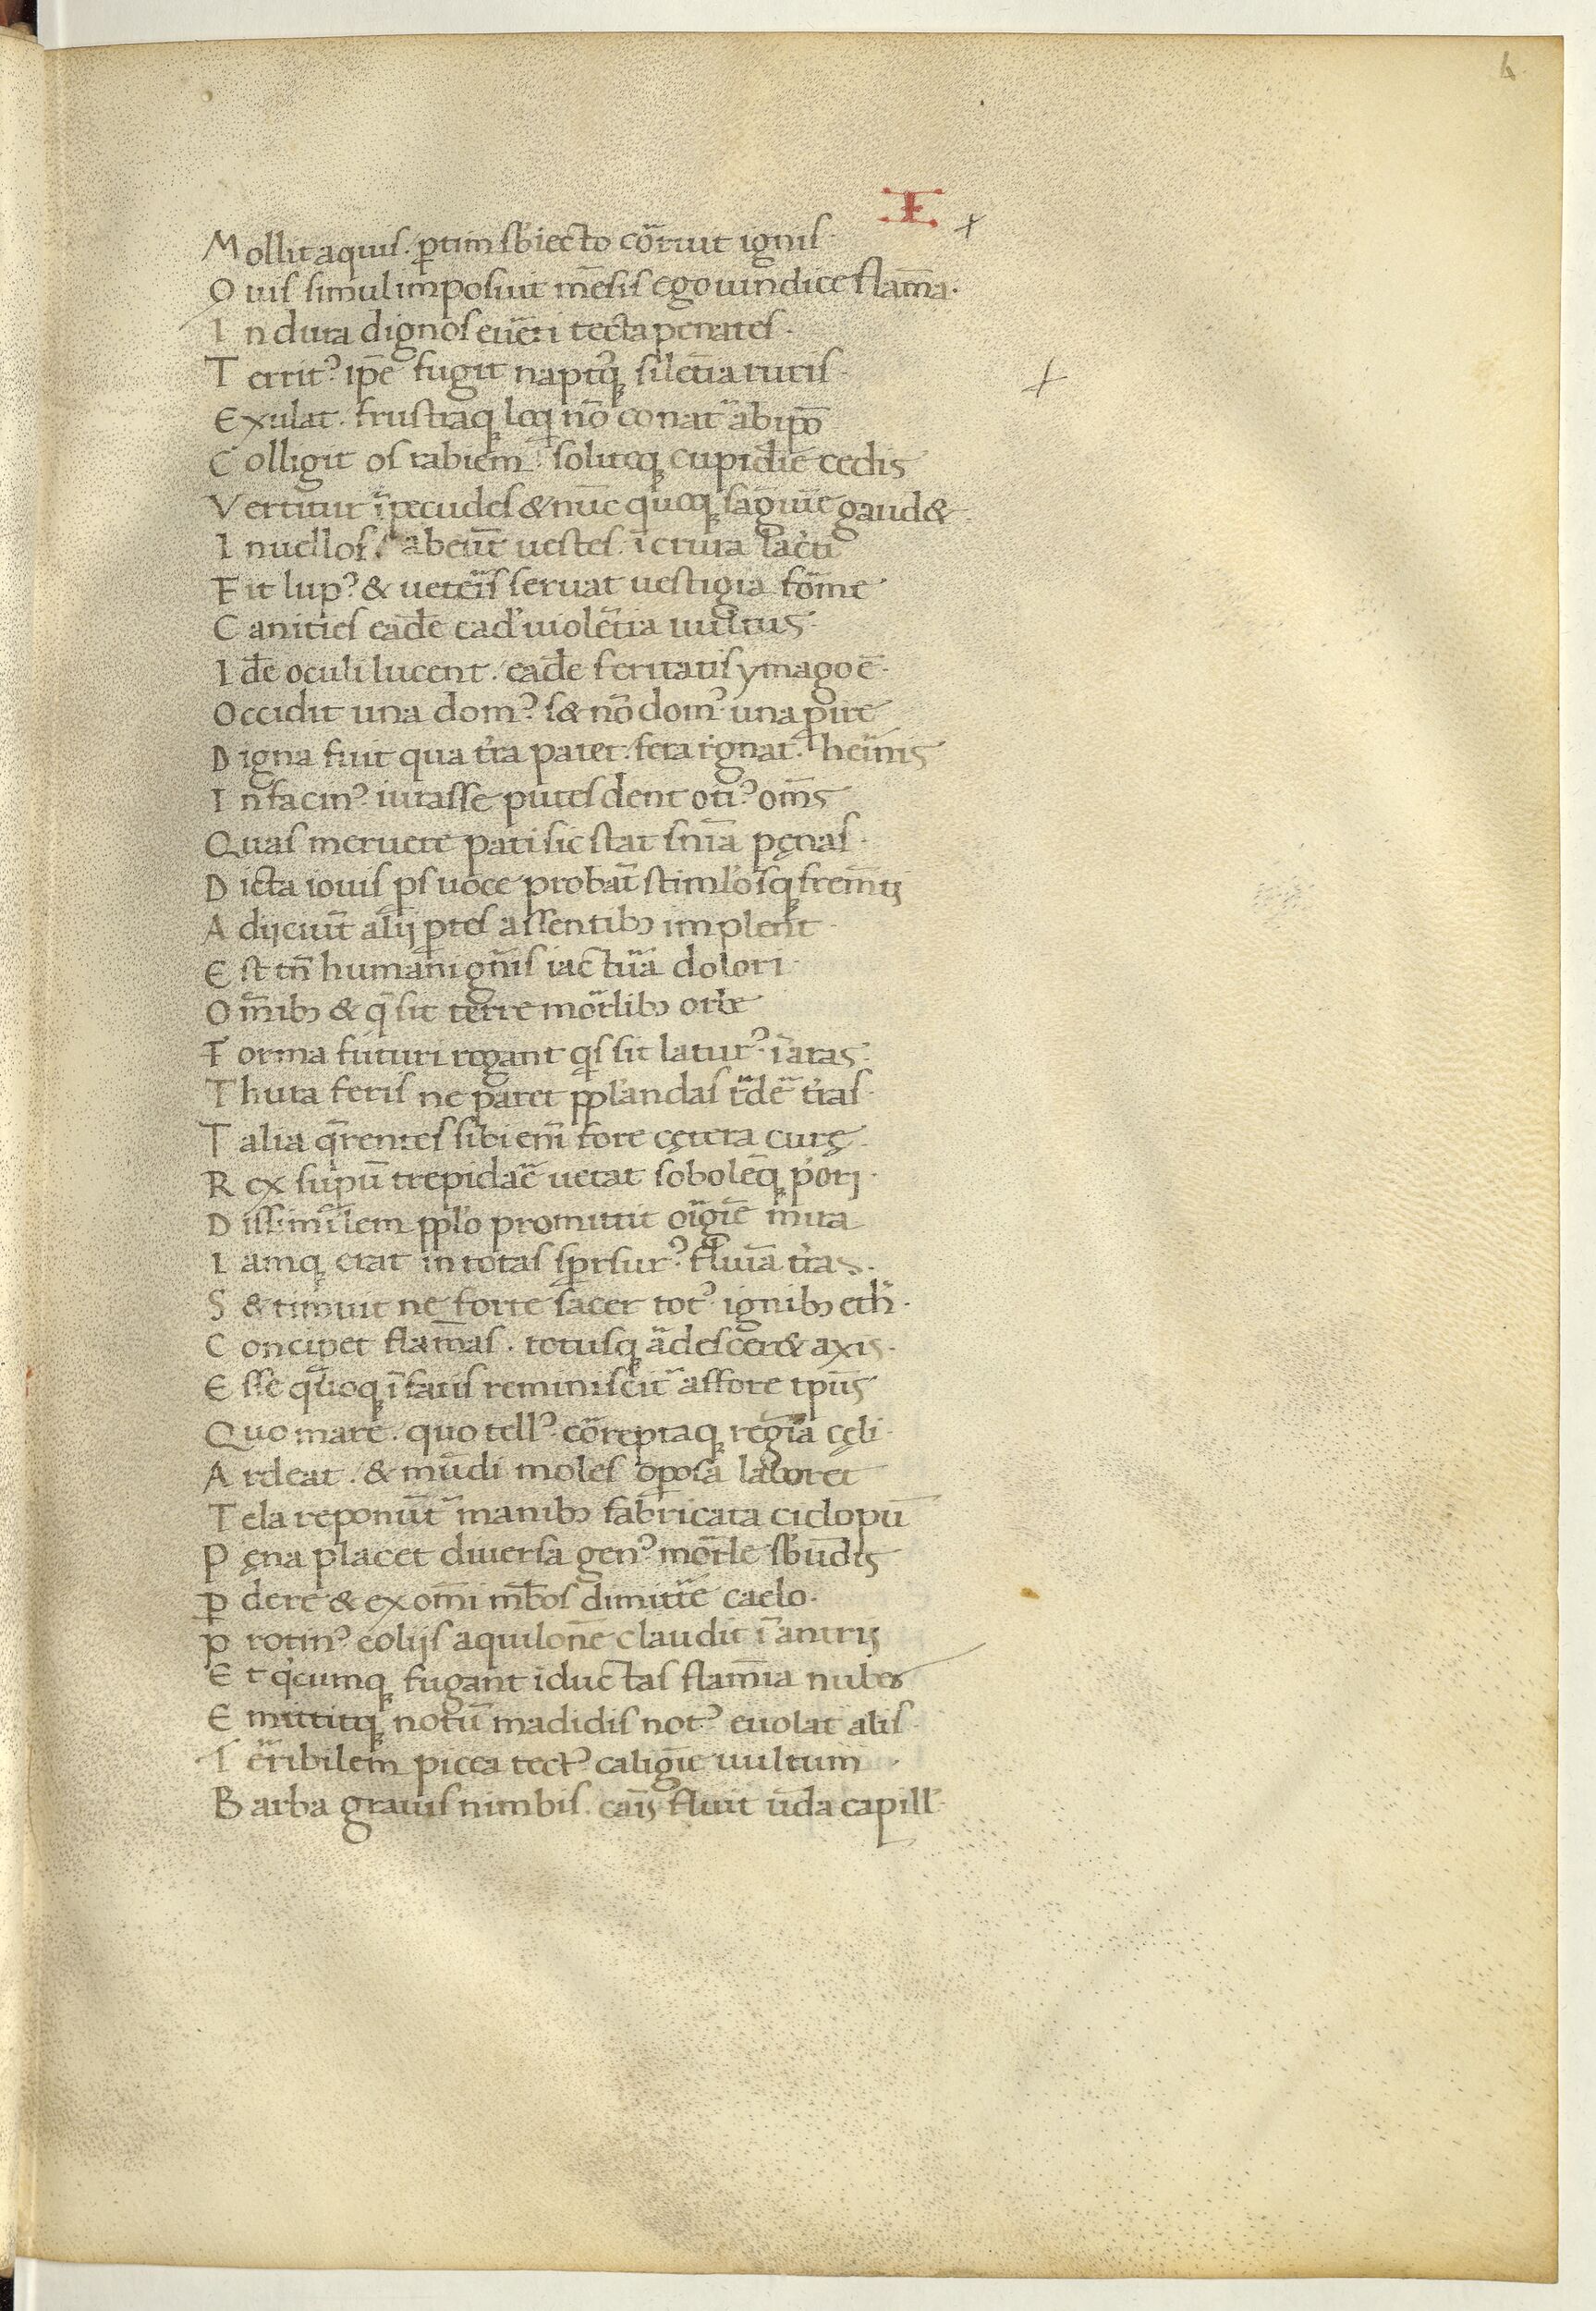 6
I
Mollit aquis. ꝑtim sb̓iecto cõruit ignis·
Q uis simul imposuit mẽsis ego uindice flam̃a·
I n dura dignos euẽri tecta penates·
T errit᾿ ip̃e fugit naptꝙ̓ silẽtia ruris·
Exulat· frustraq; loq̢ nõ conat᷑ ab ip̃o
C olligit os rabiem· soliteq; cupidiẽ cedis
Vertitur ĩ pecudes & nũc quoq; sãguĩe gaud&·
I n uellos abeũt uestes· ĩ crura lac̓ti
Fit lup᾿ & uetẽis seruat uestigia fõme
C anities ead̃e ead᾿ uiolẽtia uultus·
I d̃e oculi lucent· ead̃e feritatis ymago ẽ·
Occidit una dom᾿· s& nõ dom᾿ una ꝑire
D igna fuit qua t̓ra patet· fera r̓gnat· heĩnis
I n facin᾿ iurasse putes dent oti᾿ om̃s
Quas meruere pati sic stat sñia pęnas·
D icta iouis ps uoce probãt stiml̓osq; fremẽtj
A dijciũt alij ꝑtes assentibꝫ implent·
E st tñ humani gñis iactura dolori·
O m̃ibꝫ & q̃ sit terre mortl̓ibꝫ orbe
F orma futuri rogant q̢s sit latur᾿ ĩ aras·
Thura feris ne paret ppl̓andas t᷑de᷑ t̓ras·
T alia q̃rentes sibi eñi fore cętera curę·
R ex supũ trepidar̃e uetat sobolẽq; p̓orj·
D issim̓lem ppl̓o promittit oĩgiẽ mira
I amq; erat in totas sꝑsur᾿ fl̓uĩa t̓ras·
S & timuit ne forte sacer tot᾿ ignibꝫ eth̓·
C oncipet flam̃as· totusq; ãdescer& axis·
E sse quoq; ĩ fatis reminiscit᷑ affore tpũs
Quo mare· quo tell᾿ cõreptaq; regĩa cęli·
A rdeat· & mũdi moles oꝑosa laboret
T ela reponũt᷑ manibꝫ fabricata ciclopũ
P ęna placet diuersa gen᾿ mort̃le sb̓ ũdis
ꝑ dere & ex om̃i nĩbos dimittẽ caelo·
p rotin᾿ eolijs aquilonẽ claudit ĩ antrij
E t q̓cumq; fugant iductas flam̃ia nubes
E mittitq; notũ madidis not᾿ euolat alis·
T ẽribilem picea tect᾿ caligĩe uultum·
B arba grauis nimbis· caĩs fluit ũda capill᾿